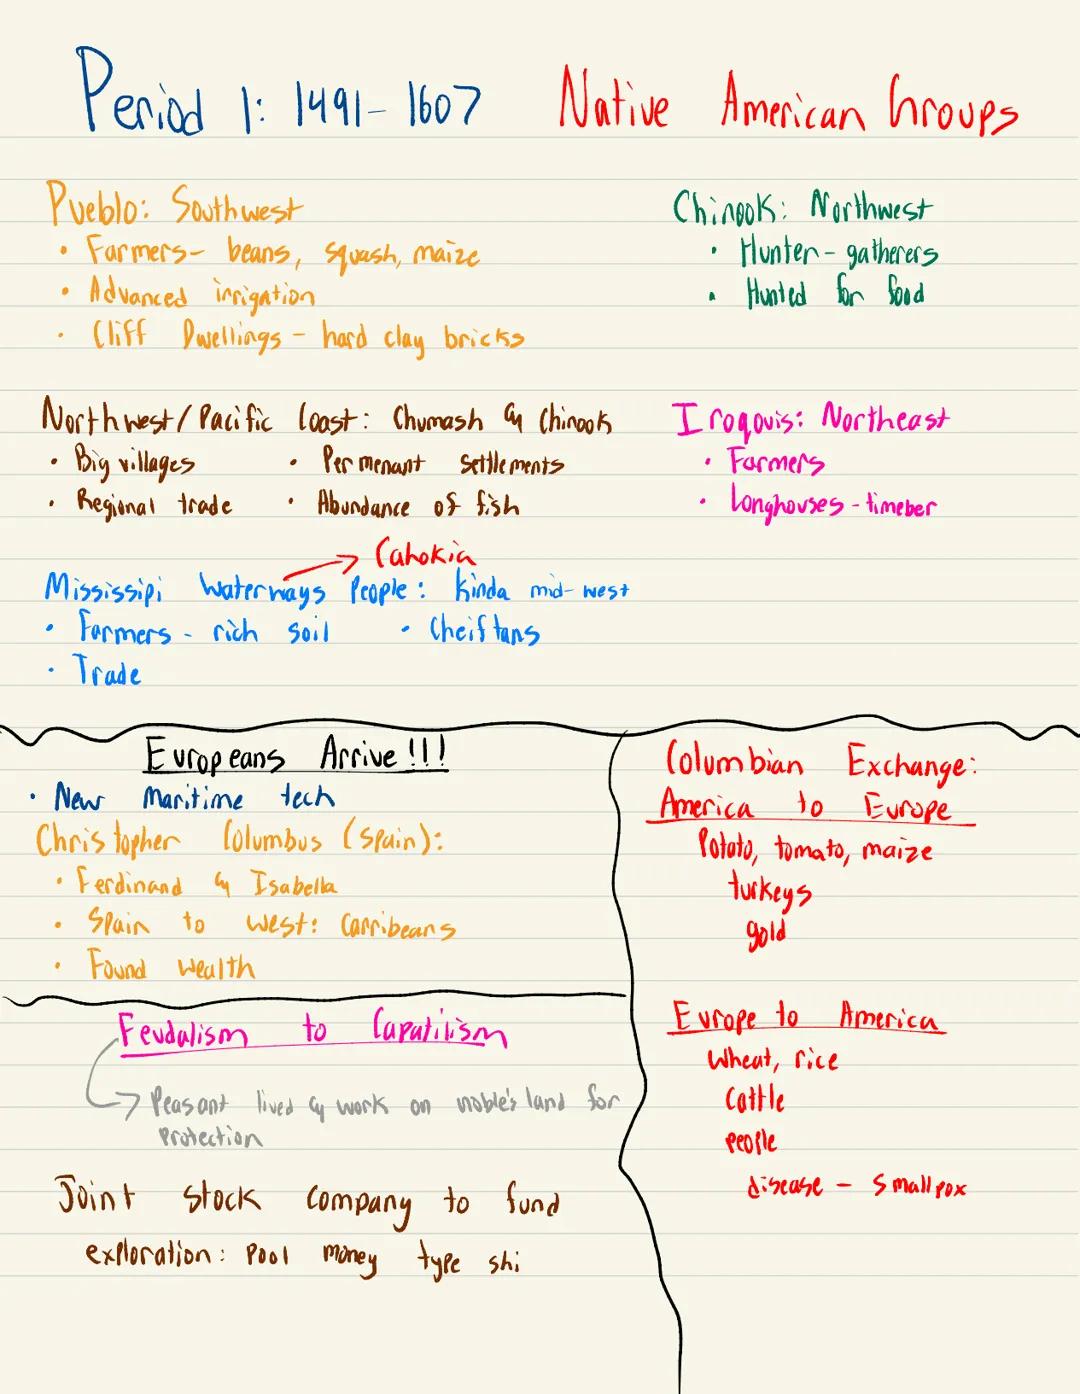 Period 1: 1491-1607 Native American Groups
Pueblo: Southwest
• Farmers- beans, squash, maize
• Advanced irrigation
• Cliff Dwellings - hard clay bricks
Chinook: Northwest
• Hunter-gatherers
• Hunted for food
Northwest/Pacific Coast: Chumash & Chinook
• Big villages • Permenant settlements
• Regional trade • Abundance of fish
Iroqouis: Northeast
• Farmers
• Longhouses - timeber
→ Cahokia
Mississipi Waterways People: kinda mid-west
• Farmers - rich soil • Cheiftans
• Trade
Europeans Arrive!!!
• New Maritime tech
Christopher Columbus (Spain):
• Ferdinand & Isabella
• Spain to west: Carribeans
• Found wealth
Feudalism to Capatilism
→ Peasant lived & work on noble's land for
Protection
Joint stock company to fund
exploration: pool money type shi
Columbian Exchange:
America to Europe
Potato, tomato, maize
turkeys
gold
Europe to America
wheat, rice
Cattle
people
disease - Smallpox